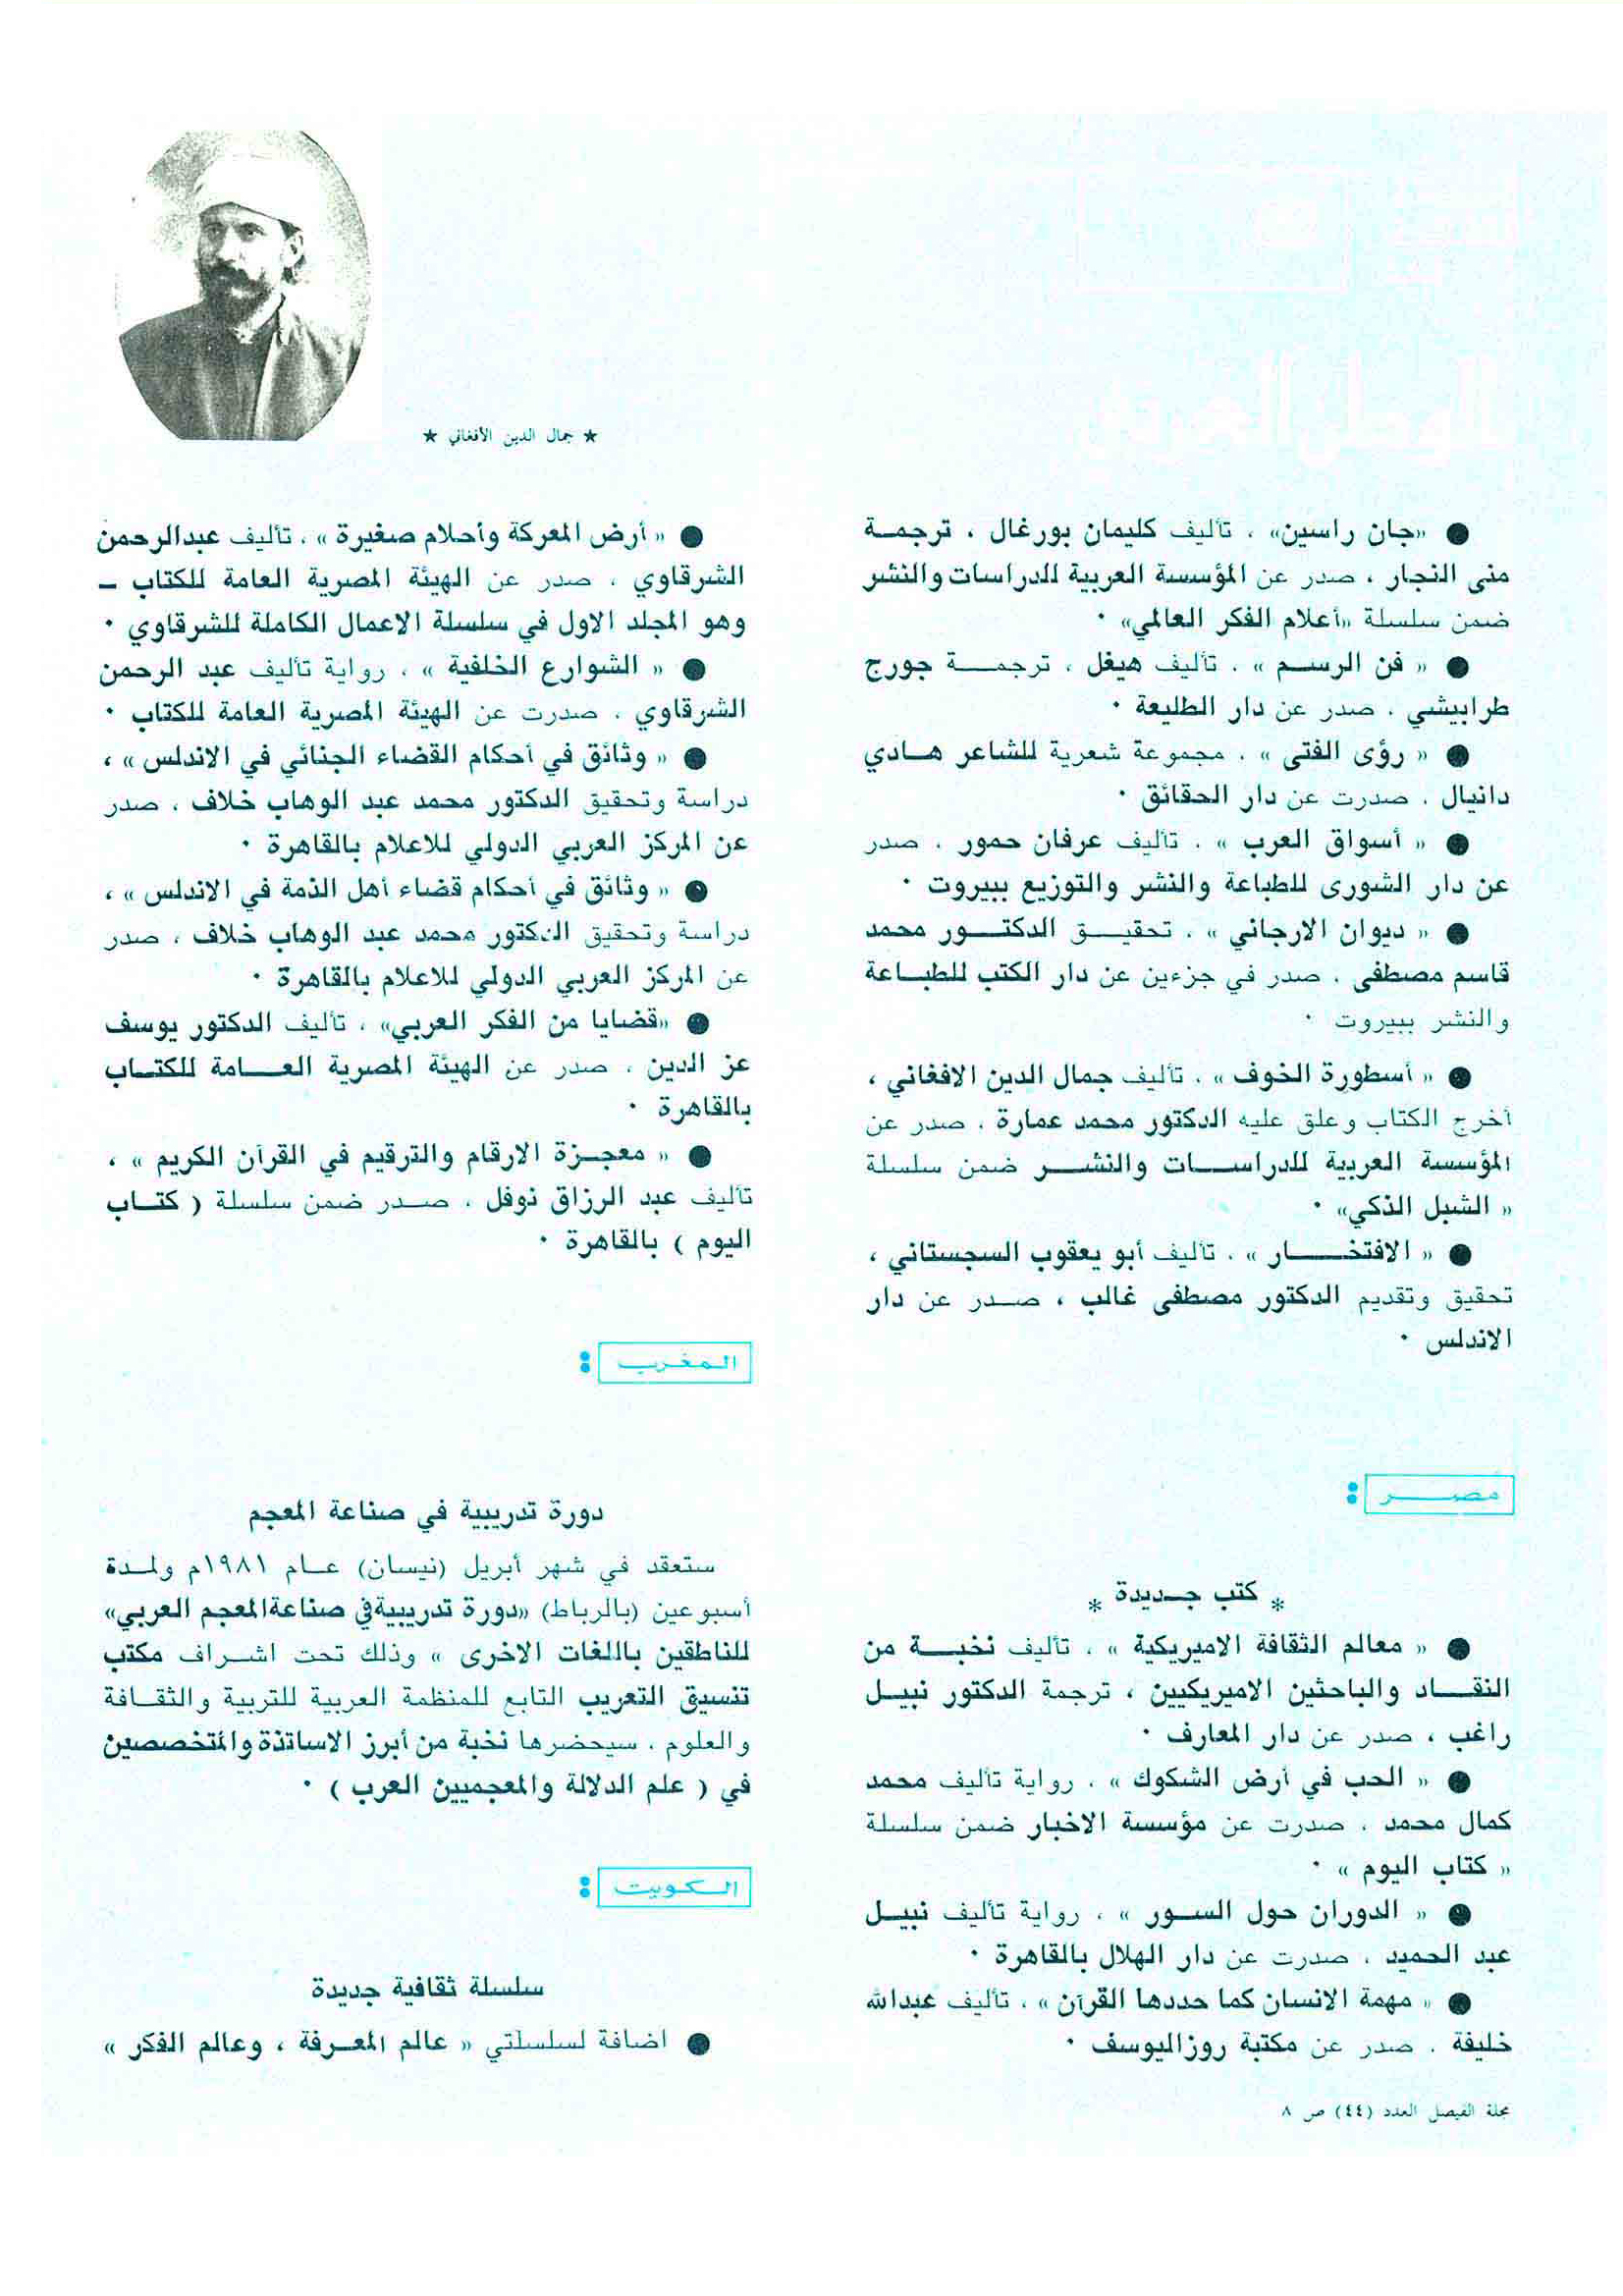 للوطن العربي
● «جان راسين» ، تأليف كليمان بورغال ، ترجمة
منى النجار ، صدر عن المؤسسة العربية للدراسات والنشر
ضمن سلسلة «أعلام الفكر العالمي» .
● « فن الرسم » ، تأليف هيغل ، ترجمة جورج
طرابيشي . صدر عن دار الطليعة .
● « رؤى الفتى » . مجموعة شعرية للشاعر هادي
دانيال . صدرت عن دار الحقائق .
● « أسواق العرب » . تأليف عرفان حمور . صدر
عن دار الشورى للطباعة والنشر والتوزيع ببيروت .
● « ديوان الارجاني » . تحقيق الدكتور محمد
قاسم مصطفى . صدر في جزءين عن دار الكتب للطباعة
والنشر ببيروت .
● « أسطورة الخوف » . تأليف جمال الدين الافغاني ،
أخرج الكتاب وعلق عليه الدكتور محمد عمارة . صدر عن
المؤسسة العربية للدراسات والنشر ضمن سلسلة
« الشبل الذكي» .
● « الافتخار » . تأليف أبو يعقوب السجستاني ،
تحقيق وتقديم الدكتور مصطفى غالب ، صدر عن دار
الاندلس .
مصر :
* كتب جديدة *
● « معالم الثقافة الاميريكية » . تأليف نخبة من
النقاد والباحثين الاميريكيين ، ترجمة الدكتور نبيل
راغب ، صدر عن دار المعارف .
● « الحب في أرض الشكوك » . رواية تأليف محمد
كمال محمد . صدرت عن مؤسسة الاخبار ضمن سلسلة
« كتاب اليوم » .
● « الدوران حول السور » . رواية تأليف نبيل
عبد الحميد . صدرت عن دار الهلال بالقاهرة .
● « مهمة الانسان كما حددها القرآن » . تأليف عبدالله
خليفة . صدر عن مكتبة روز اليوسف .
مجلة الفيصل العدد (٤٤) ص ٨
★ جمال الدين الأفغاني ★
● « أرض المعركة وأحلام صغيرة » . تأليف عبدالرحمن
الشرقاوي . صدر عن الهيئة المصرية العامة للكتاب ـ
وهو المجلد الاول في سلسلة الاعمال الكاملة للشرقاوي .
● « الشوارع الخلفية » . رواية تأليف عبد الرحمن
الشرقاوي . صدرت عن الهيئة المصرية العامة للكتاب .
● « وثائق في أحكام القضاء الجنائي في الاندلس » ،
دراسة وتحقيق الدكتور محمد عبد الوهاب خلاف . صدر
عن المركز العربي الدولي للاعلام بالقاهرة .
● « وثائق في أحكام قضاء أهل الذمة في الاندلس » ،
دراسة وتحقيق الدكتور محمد عبد الوهاب خلاف ، صدر
عن المركز العربي الدولي للاعلام بالقاهرة .
● «قضايا من الفكر العربي» ، تأليف الدكتور يوسف
عز الدين . صدر عن الهيئة المصرية العامة للكتاب
بالقاهرة .
● « معجزة الارقام والترقيم في القرآن الكريم » ،
تأليف عبد الرزاق نوفل . صدر ضمن سلسلة ( كتاب
اليوم ) بالقاهرة .
المغرب :
دورة تدريبية في صناعة المعجم
ستعقد في شهر أبريل (نيسان) عام ١٩٨١م ولمدة
أسبوعين (بالرباط) «دورة تدريبية في صناعة المعجم العربي»
للناطقين باللغات الاخرى » وذلك تحت اشراف مكتب
تنسيق التعريب التابع للمنظمة العربية للتربية والثقافة
والعلوم . سيحضرها نخبة من أبرز الاساتذة والمتخصصين
في ( علم الدلالة والمعجميين العرب ) .
الكويت :
سلسلة ثقافية جديدة
● اضافة لسلسلتي « عالم المعرفة ، وعالم الفكر »